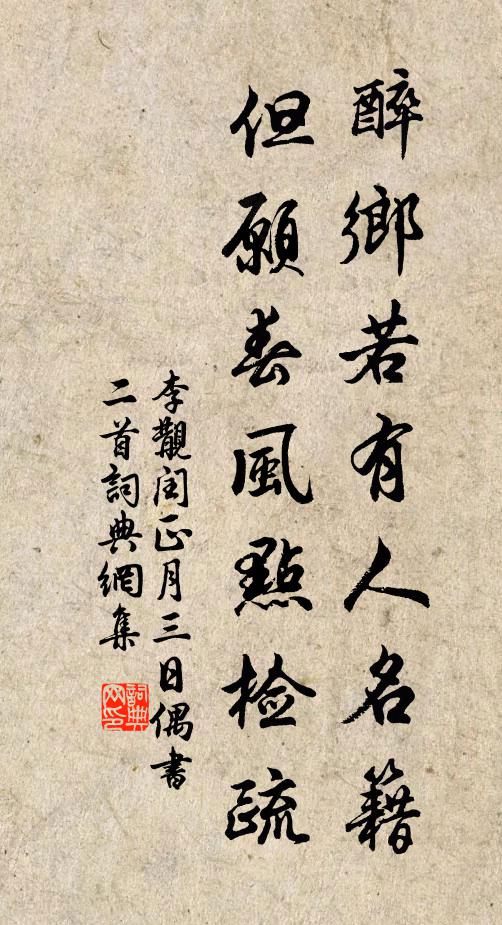 醉鄉若有人名籍
但願春風點檢疏
李覯閏正月三日偶書
二首詞典網集
詞典
网印